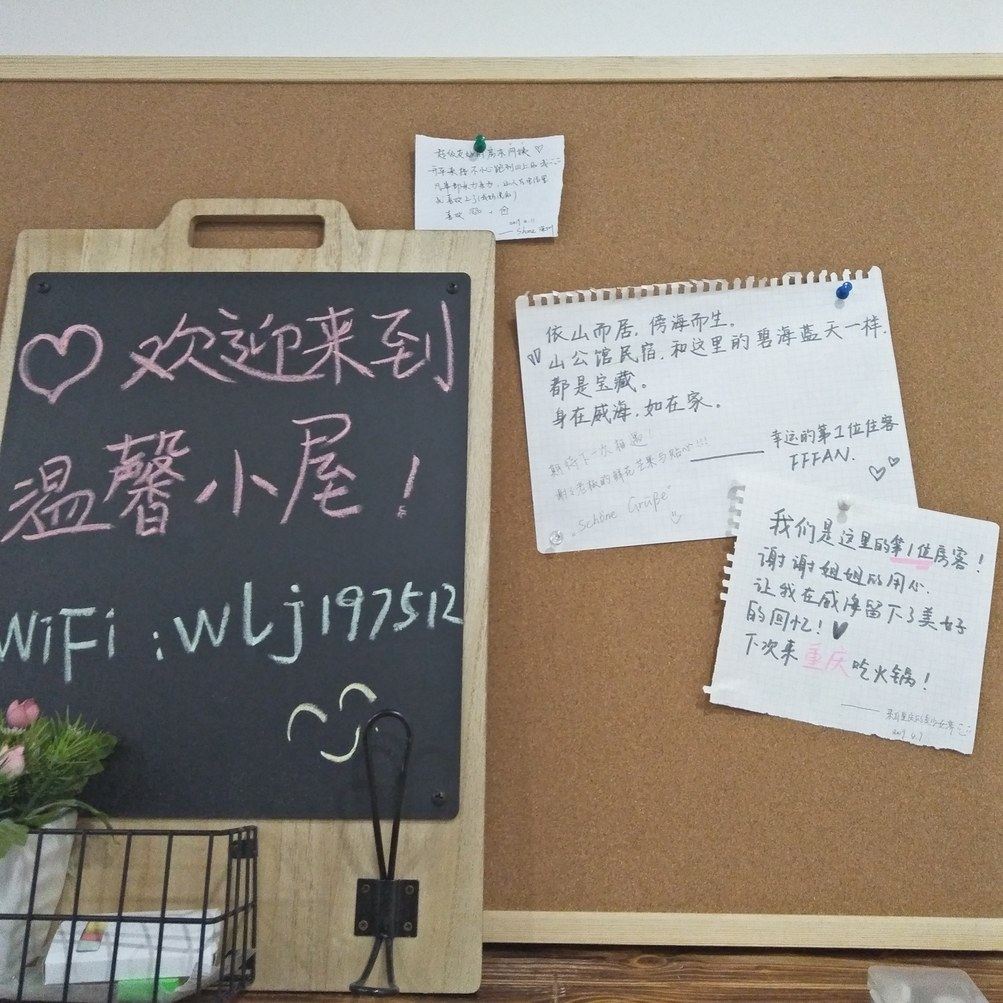 欢迎来到
温馨小屋！
WiFi：wlj197512
依山而居，傍海而生。
山公馆民宿，和这里的碧海蓝天一样，
都是宝藏。
身在威海，如在家。
幸运的第1位住客
FFFAN.
期待下一次相遇！
谢谢老板的鲜花芒果与贴心!!!
Schöne Grüße
我们是这里的第1位房客！
谢谢姐姐的用心.
让我在威海留下了美好
的回忆！
下次来重庆吃火锅！
2019.6.7
喜欢
2019.6.11